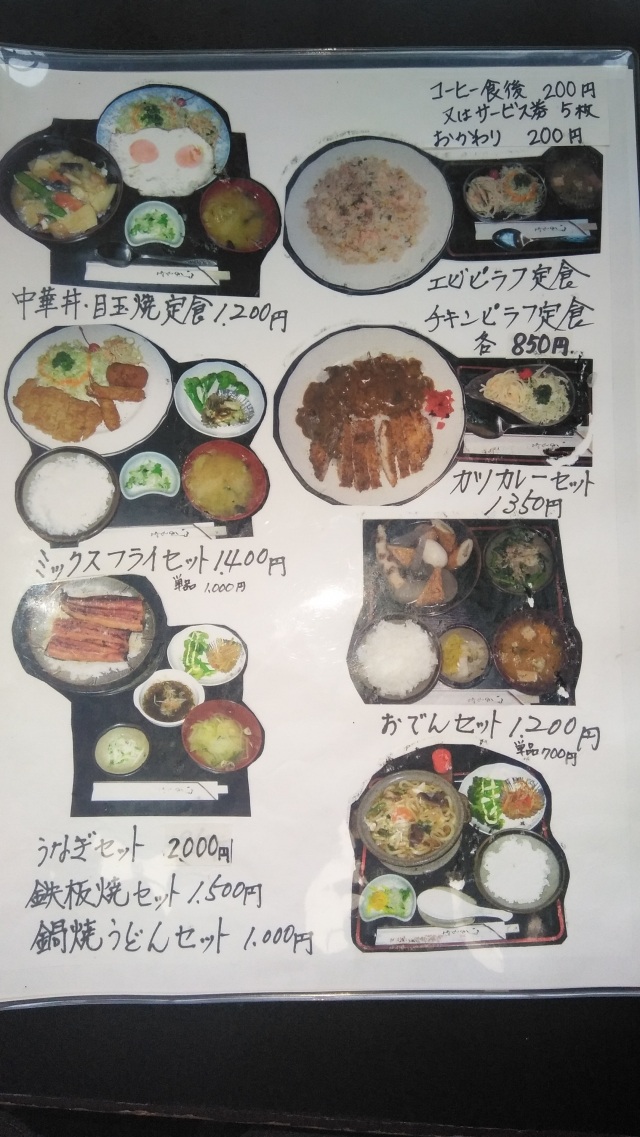 コーヒー食後 200円
又はサービス券 5枚
おかわり 200円
中華丼・目玉焼定食 1.200円
エビピラフ定食
チキンピラフ定食
各 850円
ミックスフライセット 1.400円
単品 1.000円
カツカレーセット
1350円
おでんセット 1.200円
単品 700円
うなぎセット 2000円
鉄板焼セット 1.500円
鍋焼うどんセット 1.000円